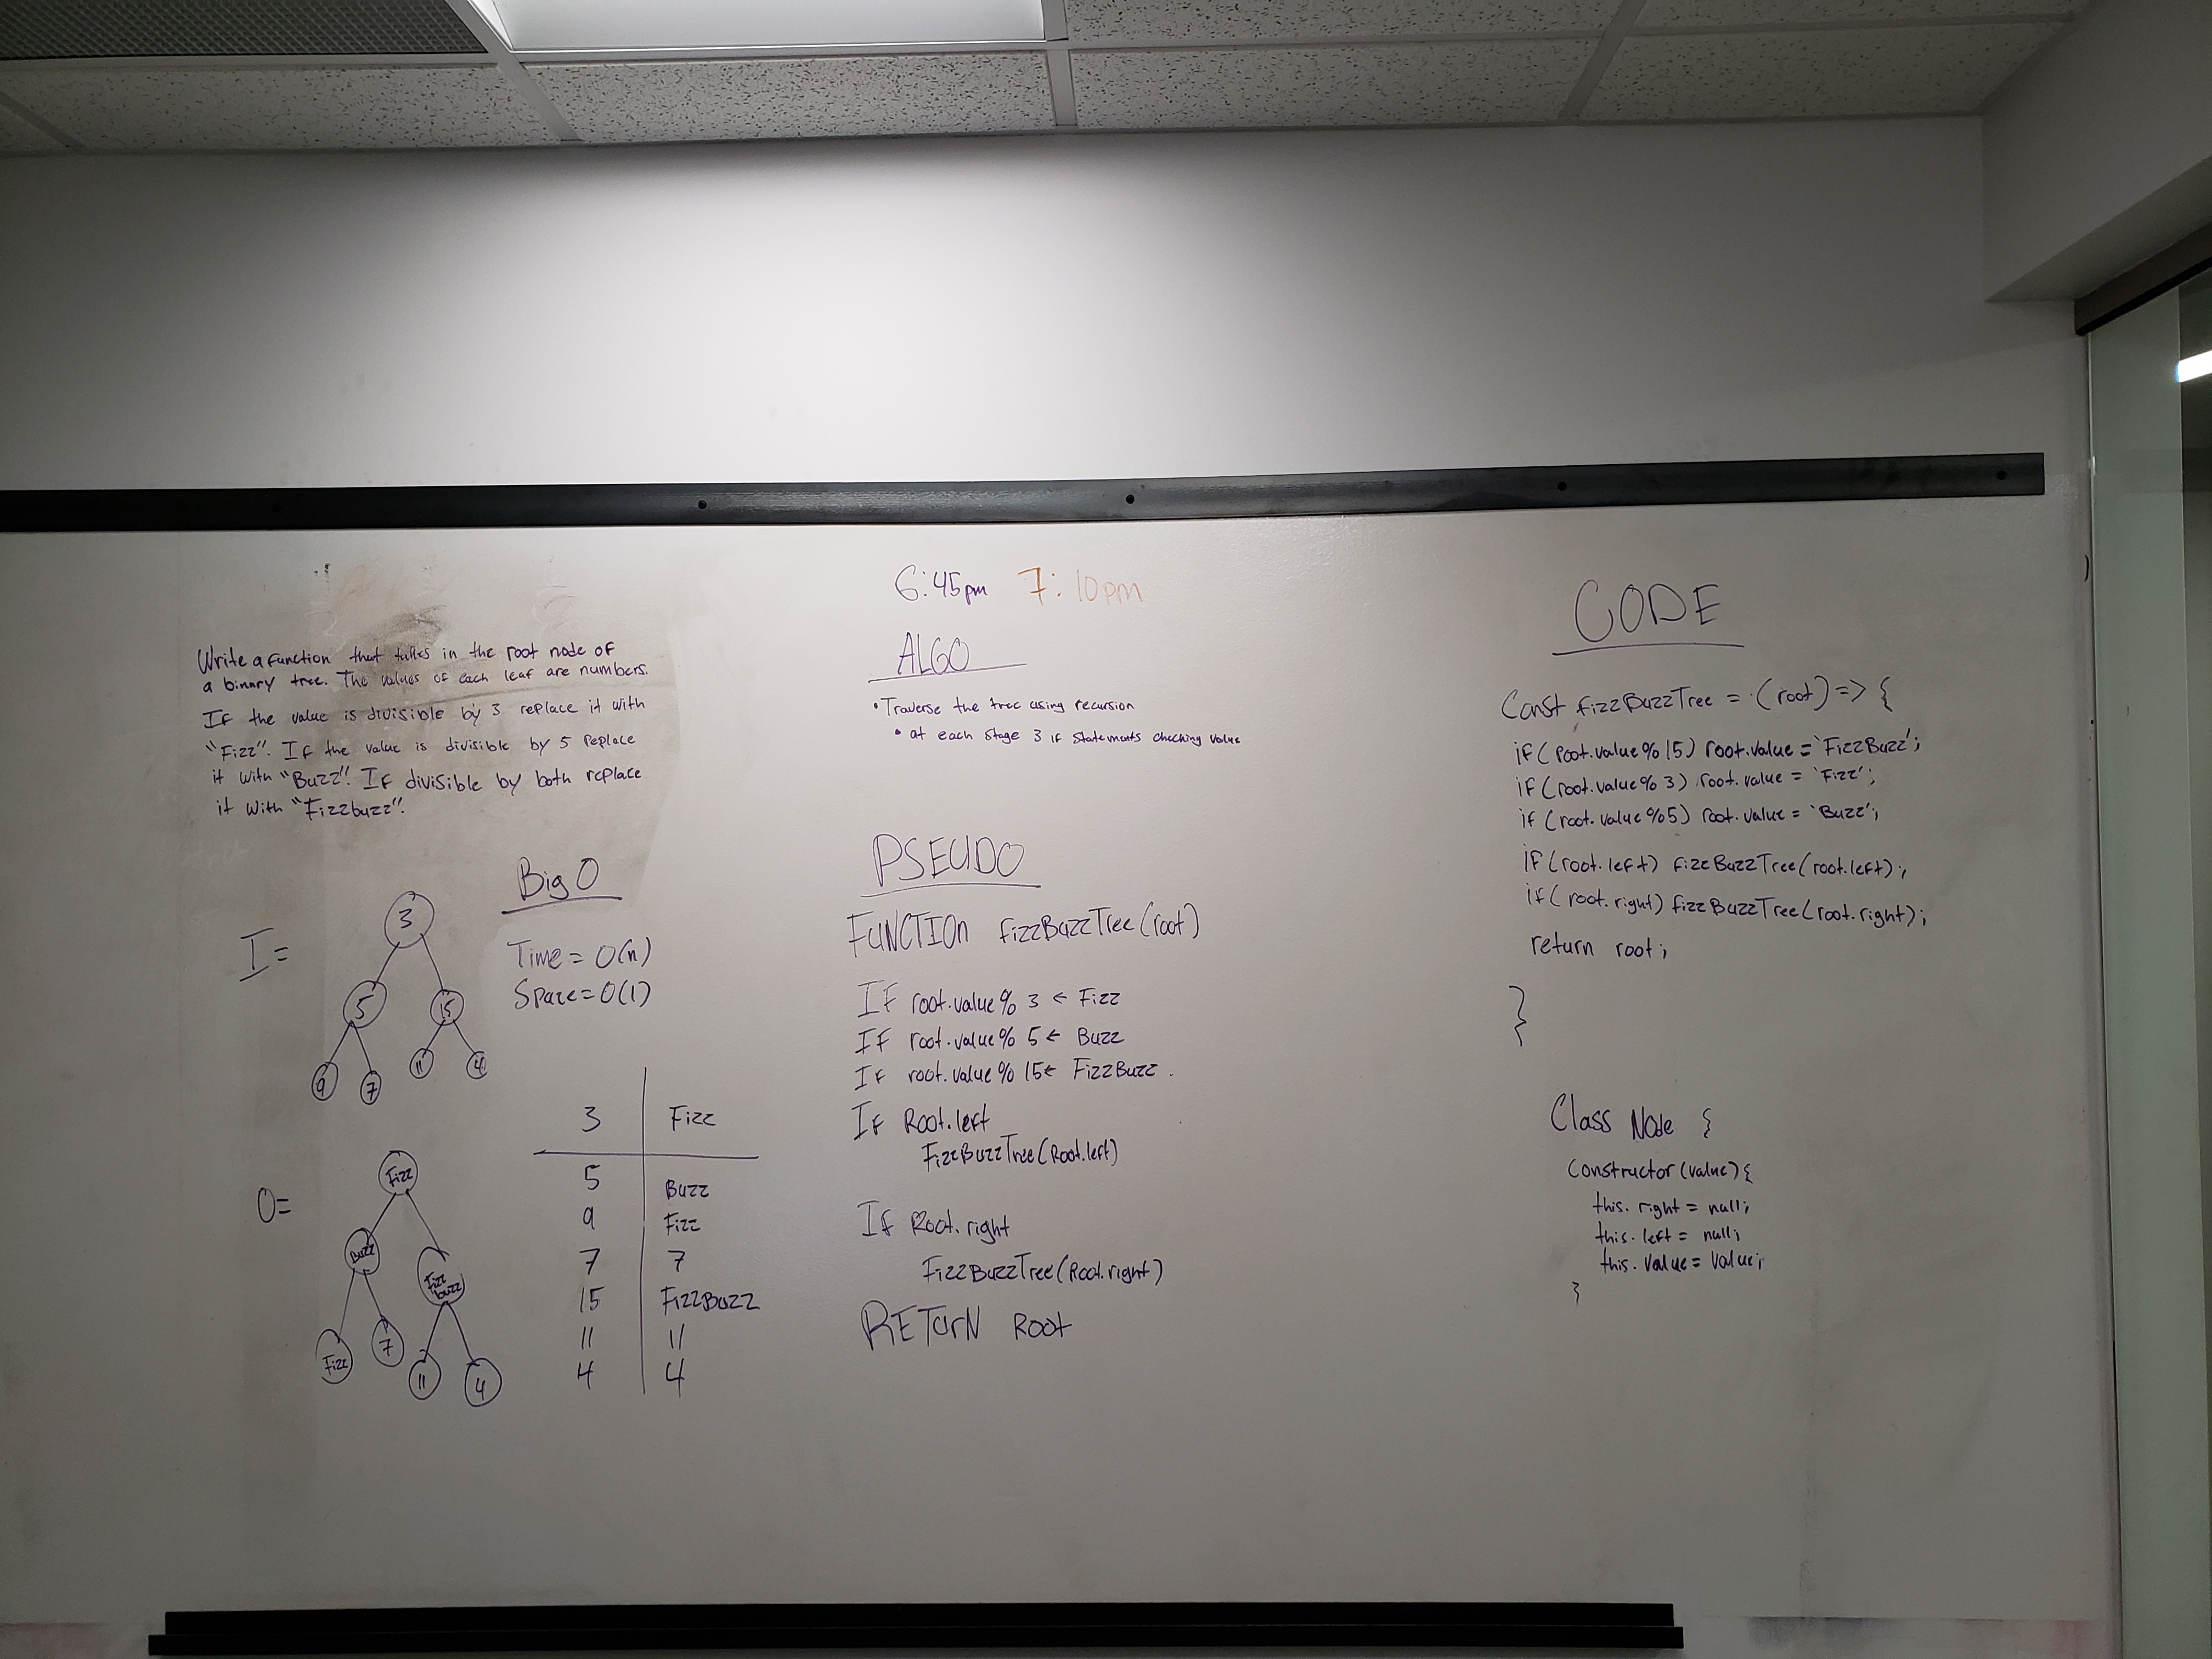 Write a function that takes in the root node of
a binary tree. The values of each leaf are numbers.
If the value is divisible by 3 replace it with
"Fizz". If the value is divisible by 5 replace
it with "Buzz". If divisible by both replace
it with "Fizzbuzz".
I=
3
5 15
9 7 11 4
O=
Fizz
Buzz Fizz buzz
Fizz 7 11 4
Big O
Time = O(n)
Space = O(1)
3 Fizz
5 Buzz
9 Fizz
7 7
15 FizzBuzz
11 11
4 4
6:45pm 7:10pm
ALGO
• Traverse the tree using recursion
• at each stage 3 if statements checking value
PSEUDO
FUNCTION fizzBuzzTree(root)
IF root.value % 3 ← Fizz
IF root.value % 5 ← Buzz
IF root.value % 15 ← FizzBuzz.
IF Root.left
FizzBuzzTree(Root.left)
IF Root.right
FizzBuzzTree(Root.right)
RETURN Root
CODE
Const fizzBuzzTree = (root) => {
if(root.value % 15) root.value = 'FizzBuzz';
if(root.value % 3) root.value = 'Fizz';
if(root.value % 5) root.value = 'Buzz';
if(root.left) fizzBuzzTree(root.left);
if(root.right) fizzBuzzTree(root.right);
return root;
}
Class Node {
Constructor(value){
this.right = null;
this.left = null;
this.value = value;
}